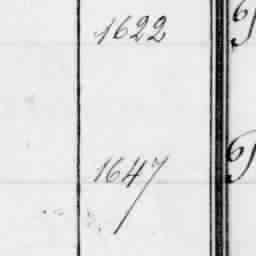 1622
1647